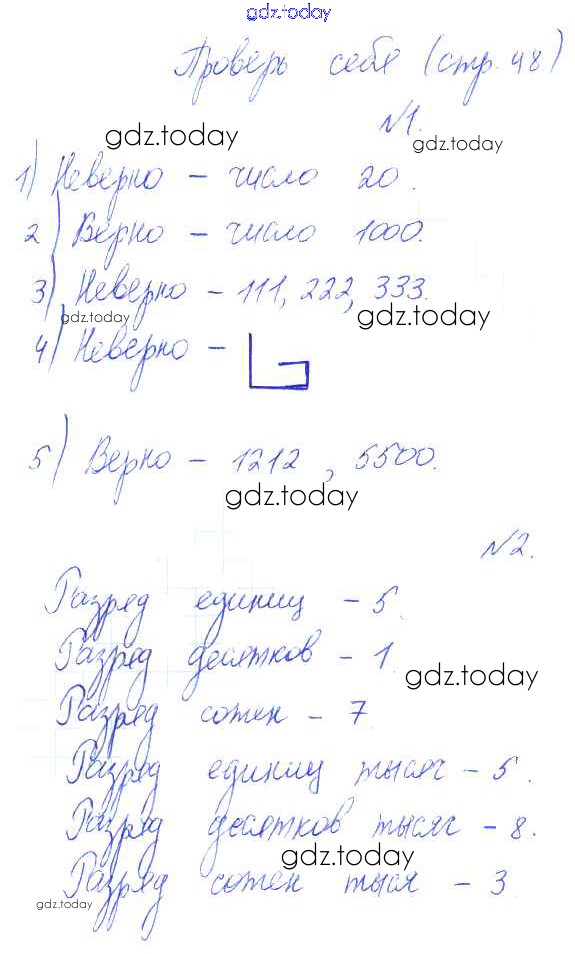 gdz.today
Проверь себя (стр. 48)
№1.
gdz.today
gdz.today
1) Неверно – число 20.
2) Верно – число 1000.
3) Неверно – 111, 222, 333.
gdz.today
gdz.today
4) Неверно –
5) Верно – 1212, 5500.
gdz.today
№2.
Разряд единиц – 5.
Разряд десятков – 1
gdz.today
Разряд сотен – 7
Разряд единиц тысяч – 5.
Разряд десятков тысяч – 8.
gdz.today
Разряд сотен тысяч – 3
gdz.today